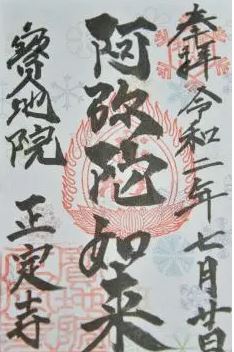 奉拝 令和二年七月廿日
阿弥陀如来
寳池院 正定寺